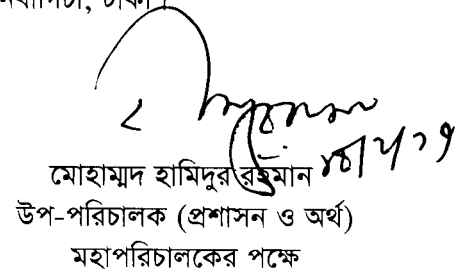 ঢাকা।
মোহাম্মদ হামিদুর রহমান
উপ-পরিচালক (প্রশাসন ও অর্থ)
মহাপরিচালকের পক্ষে